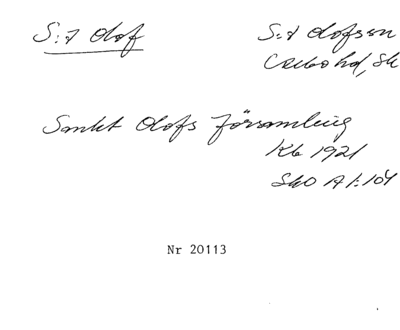 S:t Olof
S:t Olofs sn
Albo hd, Sk
Sankt Olofs församling
Kb 1921
SkO A I:104
Nr 20113